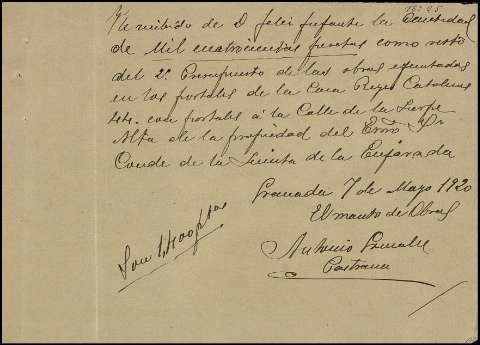 He recibido de D. Felix Infante la Cantidad
de Mil cuatrocientas pesetas como resto
del 2º Presupuesto de las obras ejecutadas
en los portales de la Casa Reyes Catolicos
44. con portales á la Calle de la Sierpe
Alta de la propiedad del Exmo Sr
Conde de la Quinta de la Enjarada
Granada 7 de Mayo 1920
El maestro de Obras
Son 1,400 ptas
Antonio
Pastrana